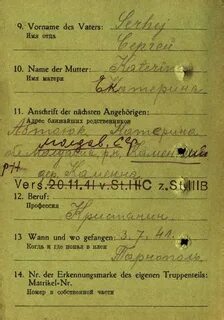 9. Vorname des Vaters: Serhej
Имя отца
Сергей
10. Name der Mutter: Katerina
Имя матери
Екатерина
11. Anschrift der nächsten Angehörigen:
Адрес ближайших родственников
Екатерина
Молдав.
дер. Каменка
Vers. 20.11.41 v.St.IIIC z.St.IIIB
12. Beruf:
Профессия
Кристянин.
13. Wann und wo gefangen: 3.7.41.
Когда и где попал в плен
Тарнополь
14. Nr. der Erkennungsmarke des eigenen Truppenteils:
Matrikel-Nr.
Номер в собственной части